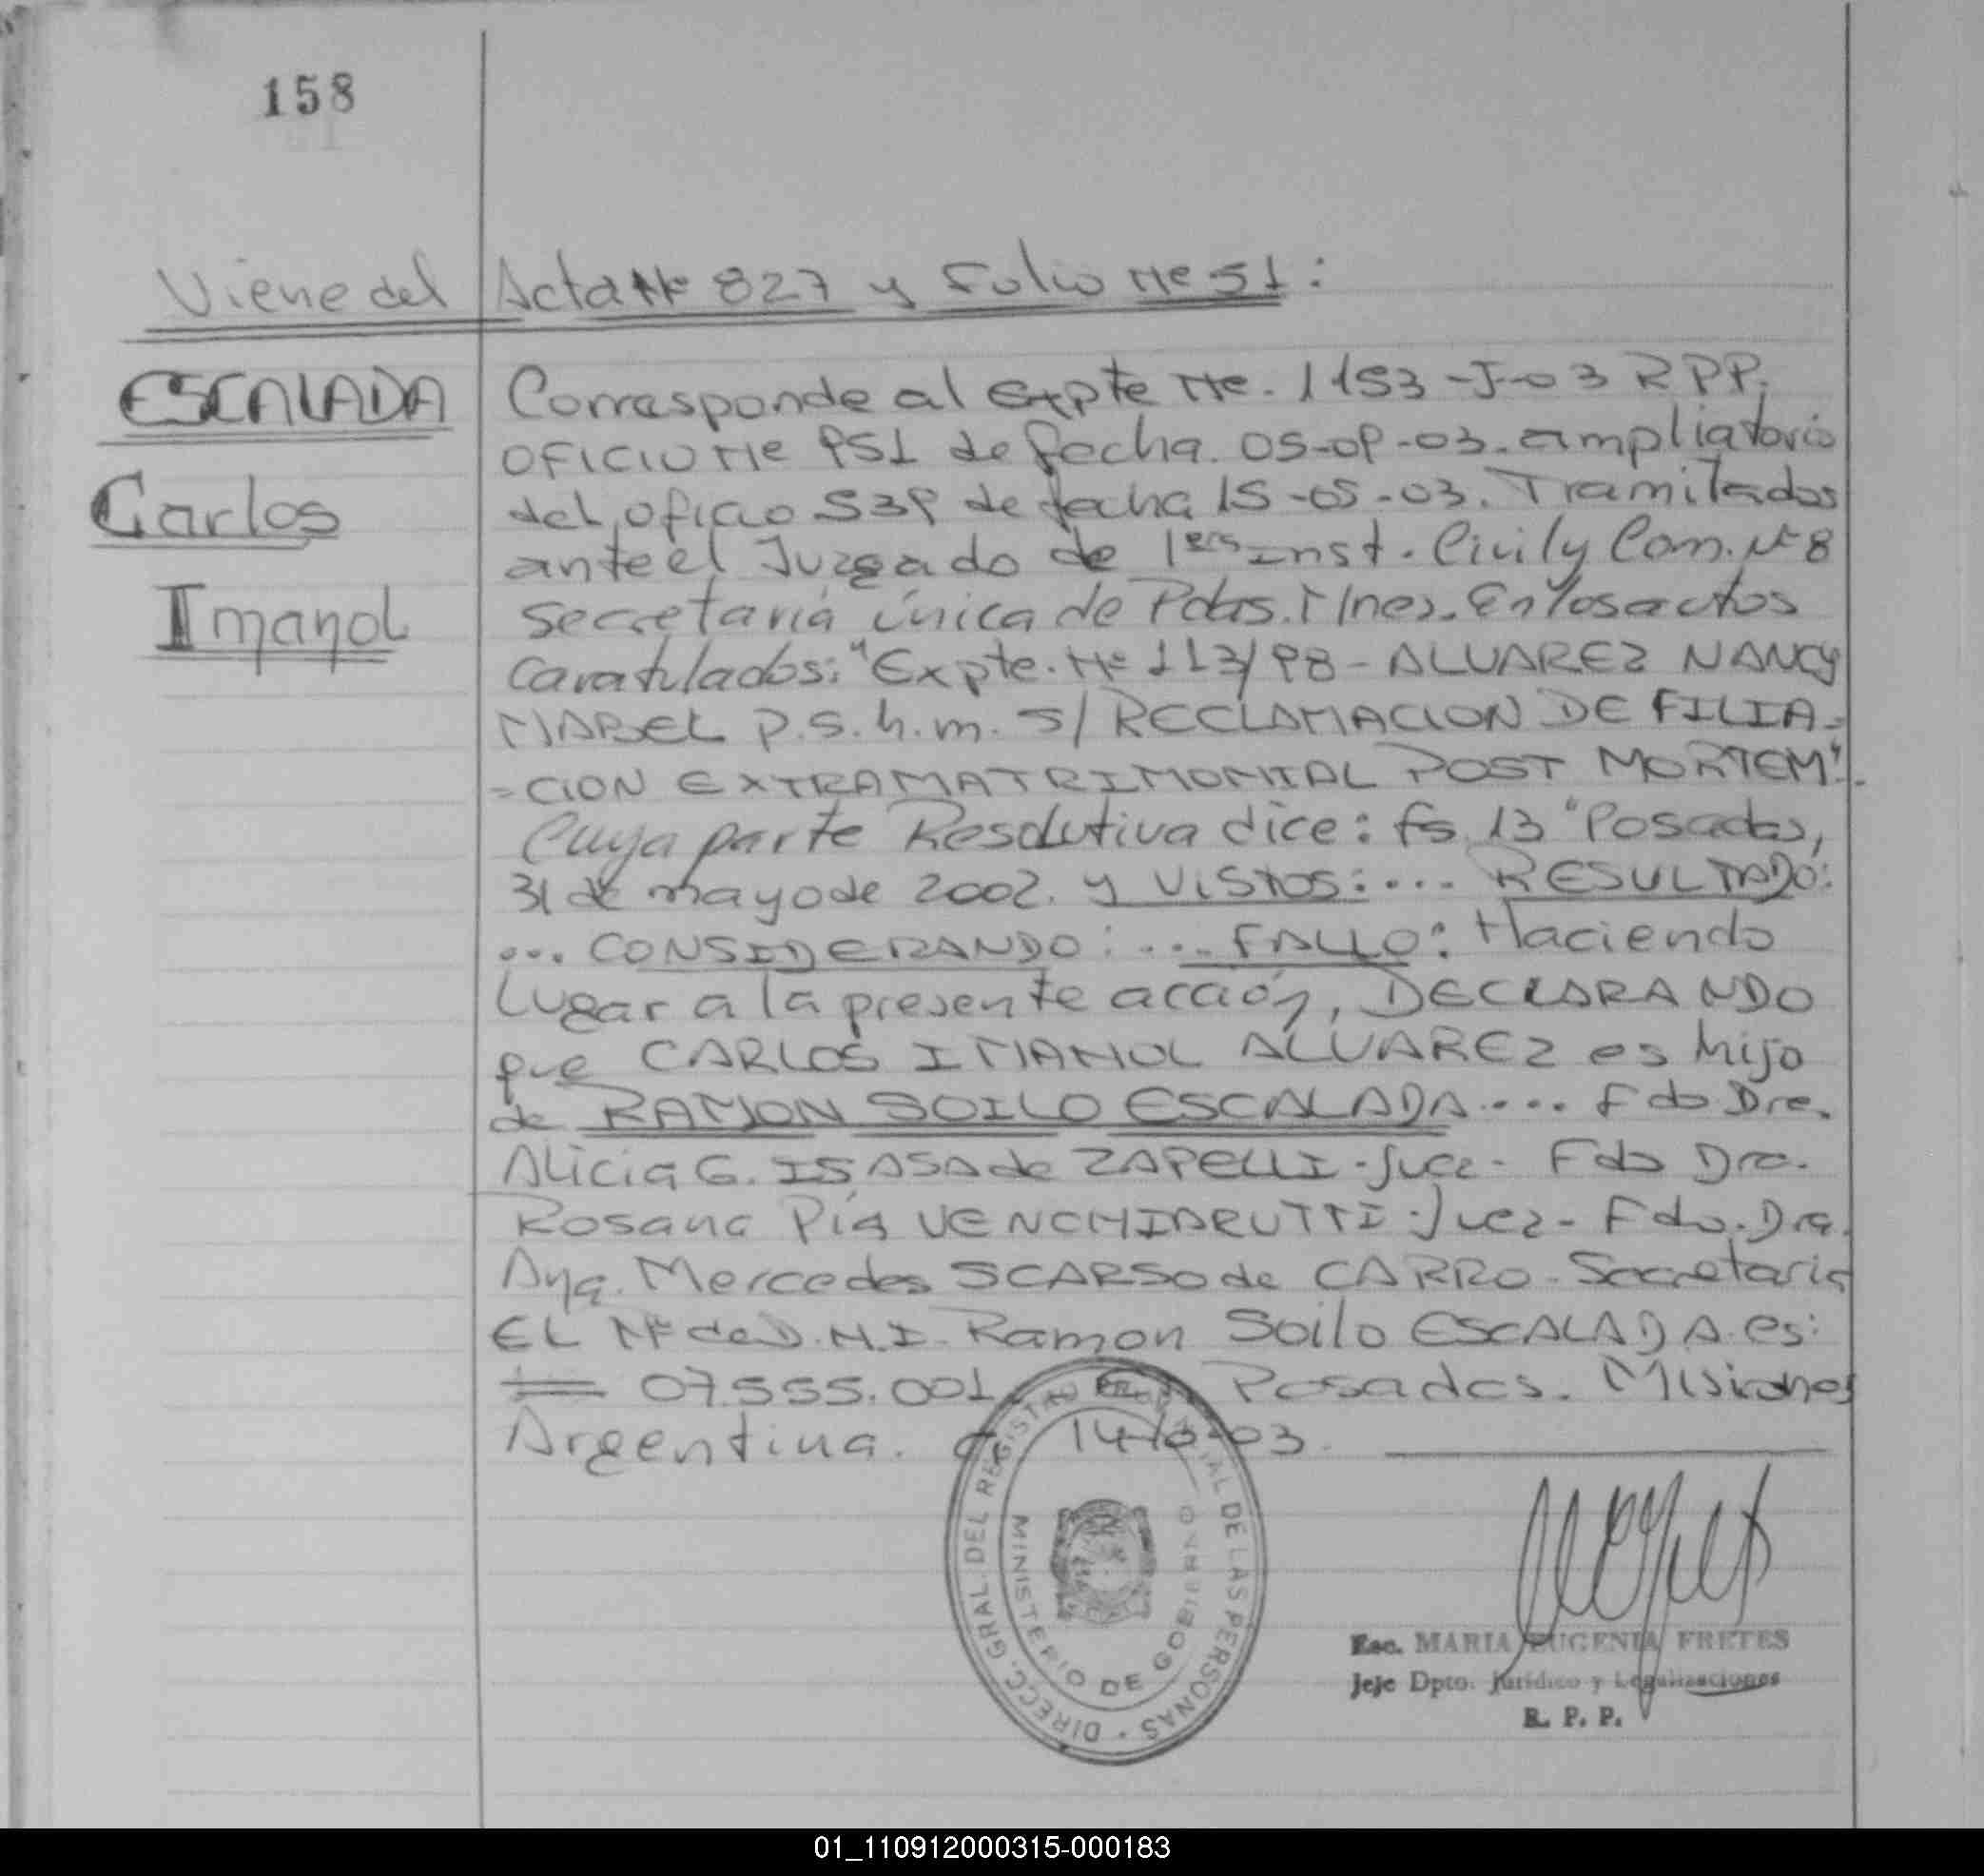 158
Viene del Acta Nº 827 y Folio Nº 51:
ESCALADA
Carlos
Imanol
Corresponde al Expte Nº. 1153-J-03 RPP.
OFICIO Nº 951 de fecha. 05-09-03. ampliatorio
del oficio 539 de fecha 15-05-03. Tramitados
ante el Juzgado de 1era Inst. Civil y Com. Nº 8
Secretaria única de Pdas. Mnes. En los actos
Caratulados: "Expte. Nº 113/98 - ALVAREZ NANCY
MABEL p.s.h.m. S/ RECLAMACION DE FILIA=
=CION EXTRAMATRIMONIAL POST MORTEM".
Cuya parte Resolutiva dice: fs. 13 "Posadas,
31 de mayo de 2002. y VISTOS:.... RESULTADO:
... CONSIDERANDO: .... FALLO: Haciendo
Lugar a la presente acción, DECLARANDO
que CARLOS IMANOL ALVAREZ es hijo
de RAMON SOILO ESCALADA.... Fdo Dra.
Alicia G. ISASA de ZAPELLI - Juez - Fdo Dra.
Rosana Pía VENCHIARUTTI - Juez - Fdo. Dra.
Ana. Mercedes SCARSO de CARRO - Secretaria
EL Nº de D.N.I. Ramon Soilo ESCALADA es:
07.555.001. Posadas. Misiones
Argentina. 14-10-03.
DIRECC. GRAL. DEL REGISTRO PROVINCIAL DE LAS PERSONAS
MINISTERIO DE GOBIERNO
Esc. MARIA EUGENIA FRETES
Jefe Dpto. Jurídico y Legalizaciones
R. P. P.
01_110912000315-000183